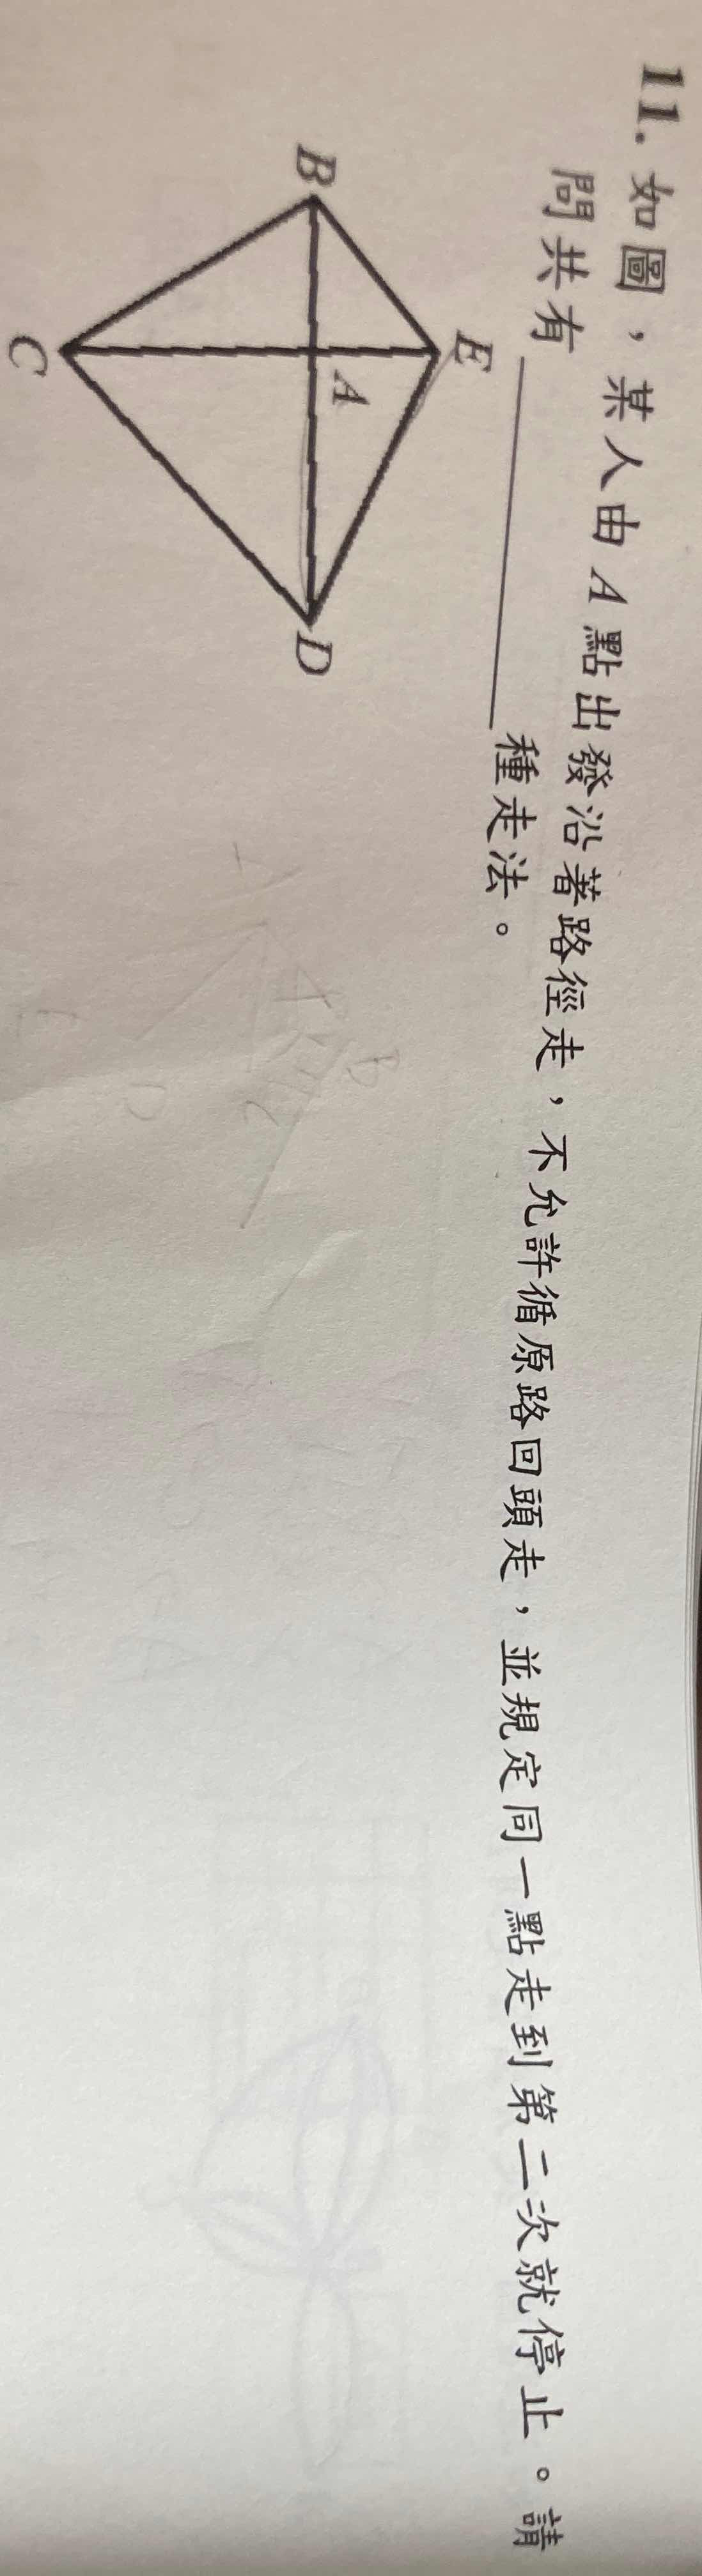 11. 如圖，某人由 A 點出發沿著路徑走，不允許循原路回頭走，並規定同一點走到第二次就停止。請
問共有 ________ 種走法。
E
B
A
D
C